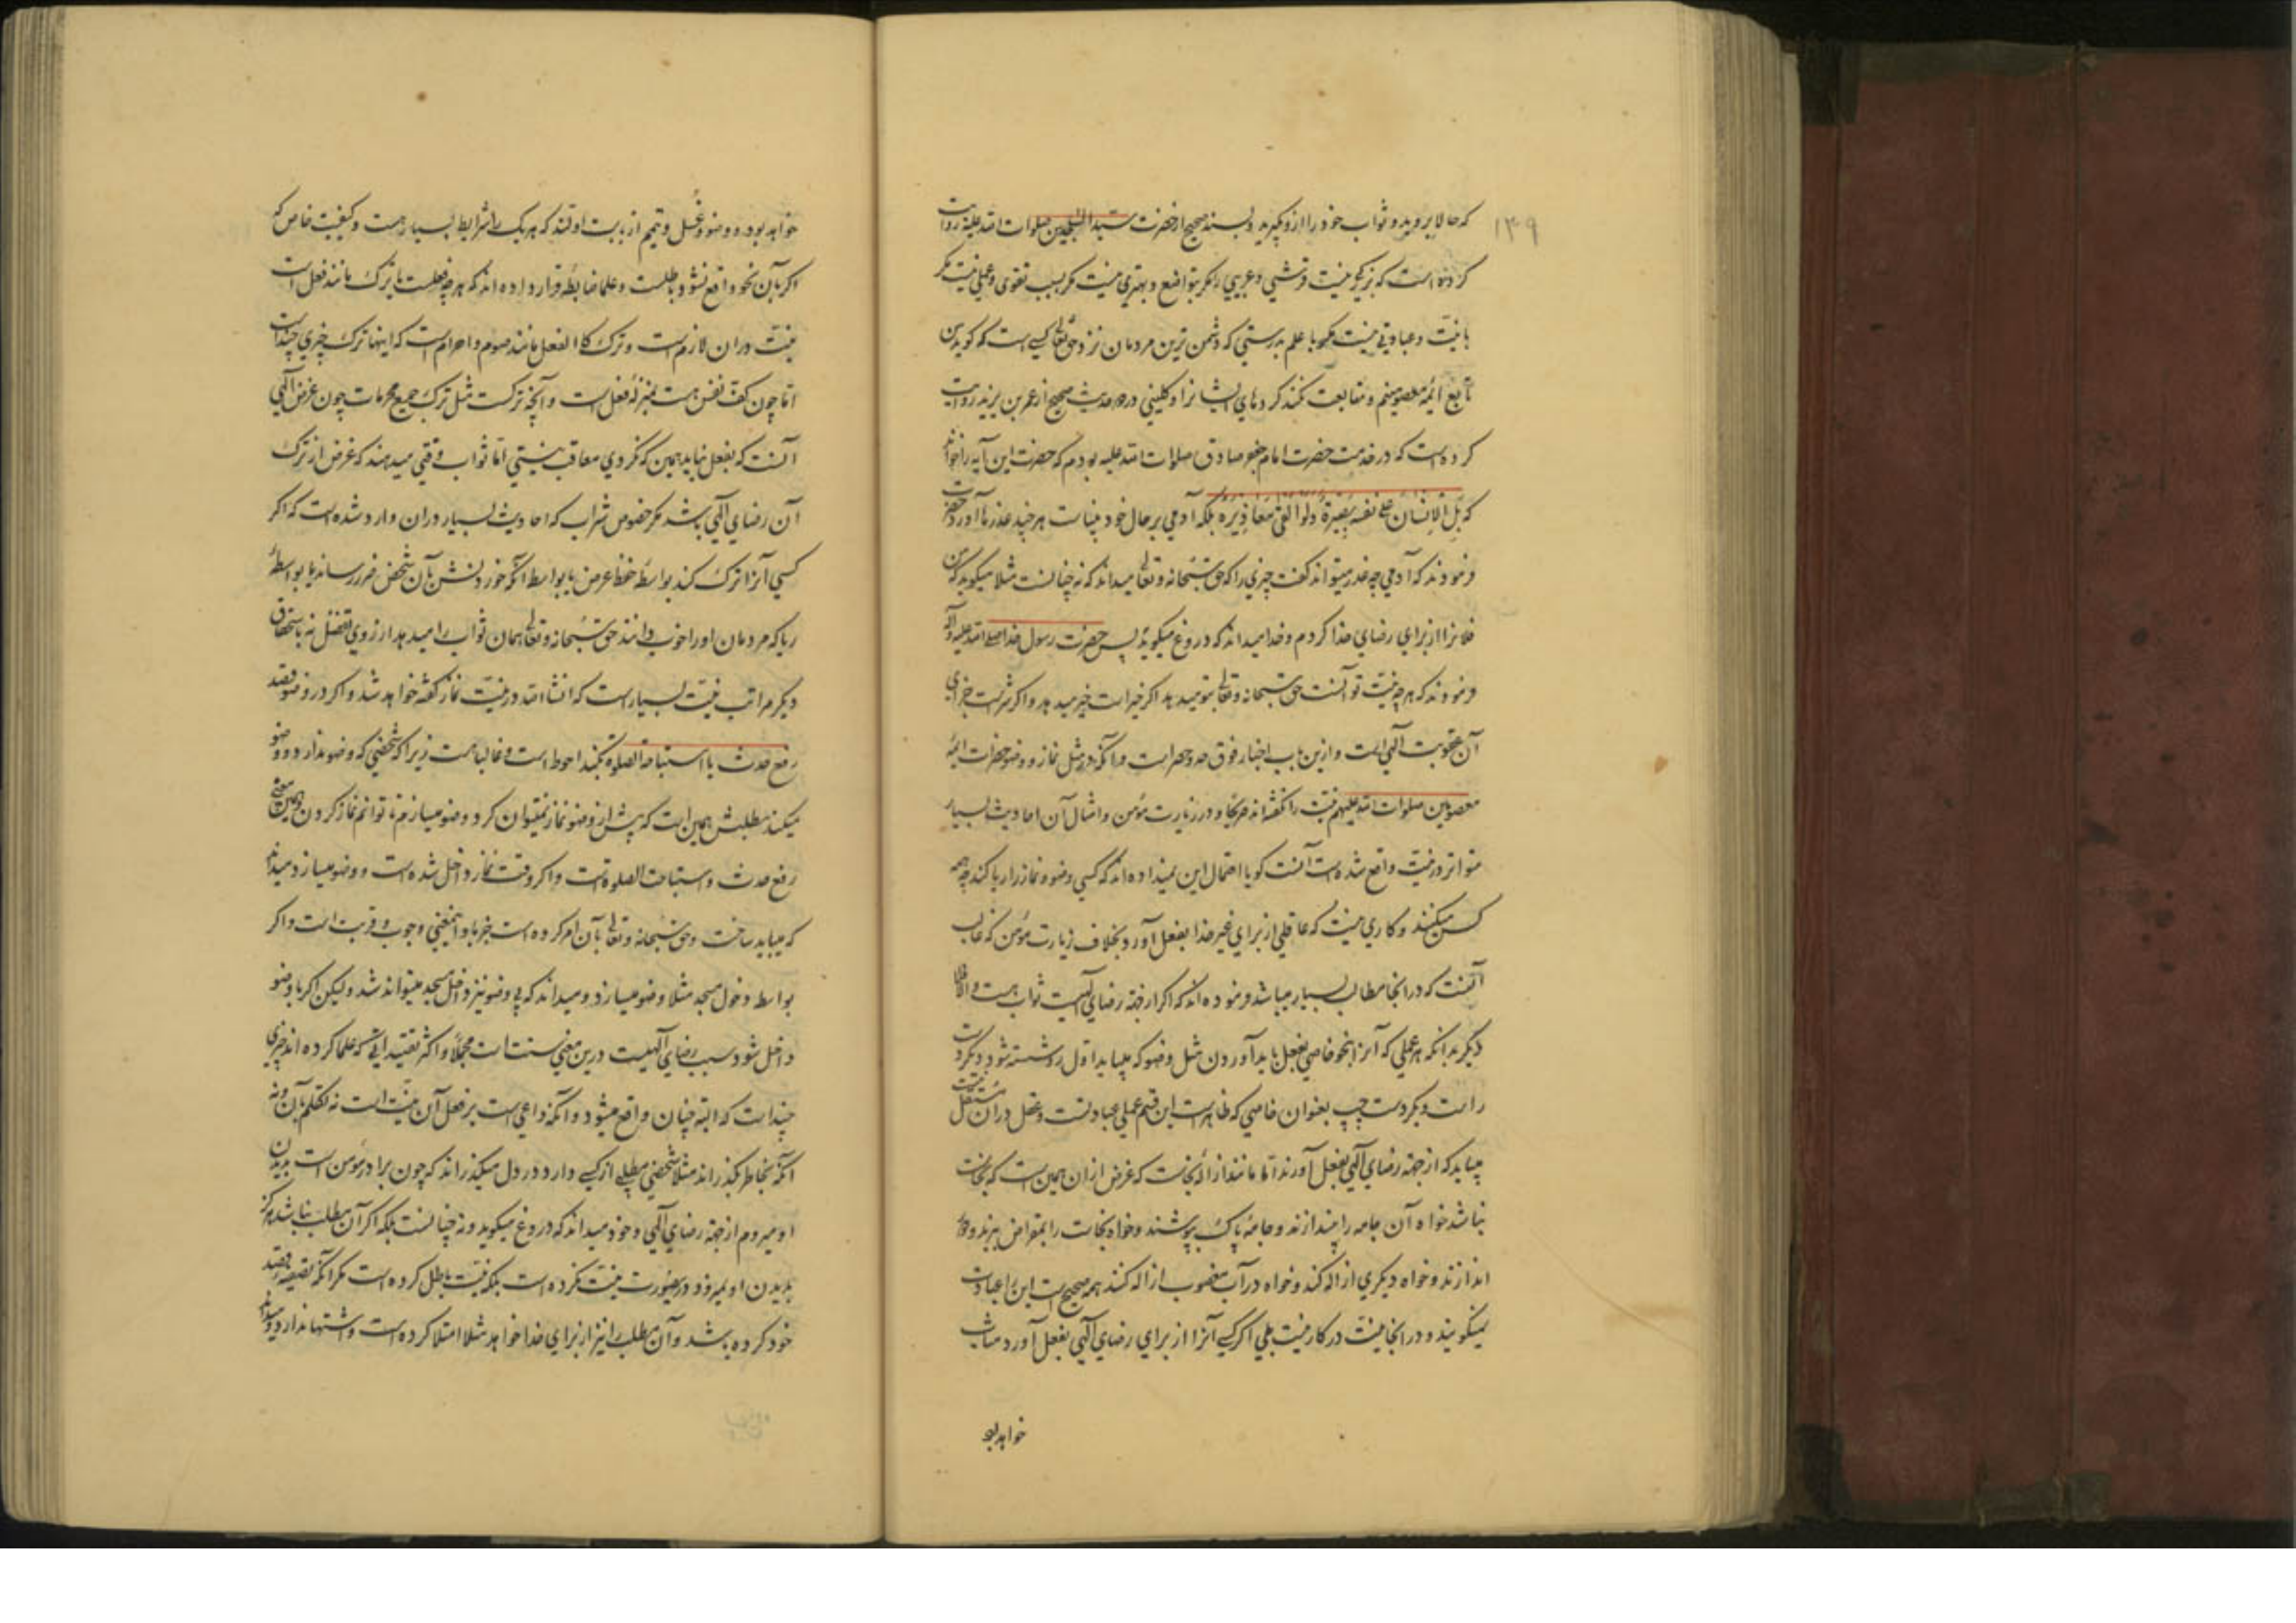 ۱۳۹
که حالا بروید و ثواب خود را ازو بگیرید و بسند صحیح از حضرت سید الساجدین صلوات الله علیه روایت
کرده است که بزرگی نیست قرشیی و عربیی را مگر بتواضع و بهتری نیست مگر بسبب تقوی و عملی نیست مگر
با نیت و عبادتی نیست مگر با علم بدرستی که دشمن ترین مردمان نزد حق تعالی کسی است که گوید من
تابع ائمه معصومینم و متابعت نکند کردهای ایشانرا و کلینی در حدیث صحیح از عمر بن یزید روایت
کرده است که در خدمت حضرت امام جعفر صادق صلوات الله علیه بودم که حضرت این آیه را خواندند
که بل الانسان علی نفسه بصیرة و لو القی معاذیره بلکه آدمی بر حال خود بیناست هر چند عذرها آورد حضرت
فرمودند که آدمی چه قدر میتواند گفت چیزی را که حق سبحانه و تعالی میداند که نه چنانست مثلا میگوید که من
فلانرا از برای رضای خدا کردم و خدا میداند که دروغ میگوید پس حضرت رسول خدا صلی الله علیه و آله
فرمودند که هر چه نیت تو آنست حق سبحانه و تعالی بتو میدهد اگر خیر است خیر میدهد و اگر شر است جزای
آن عقوبت الهی است و ازین باب اخبار فوق حد و حصر است و آنکه در مثل نماز و وضو حضرات ائمه
معصومین صلوات الله علیهم نیت را نگفته اند صریحا و در زیارت مؤمن و امثال آن احادیث بسیار
متواتر در نیت واقع شده است آنست که گویا احتمال این نمیداده اند که کسی وضو و نماز را ریا کند چه همه
کس میکنند و کاری نیست که عاقلی از برای غیر خدا بفعل آورد بخلاف زیارت مؤمن که غالب
آنست که در آنجا مطالب بسیار میباشد فرموده اند که اگر از جهة رضای الهیست ثواب هست و الا فلا
دیگر بدانکه هر عملی که آنرا بنحو خاصی بفعل باید آوردن مثل وضو که میباید اول رو شسته شود دیگر دست
راست دیگر دست چپ بعنوان خاصی که ظاهرست این قسم عملی عبادتست و عقل در آن مستقل نیست
میباید که از جهة رضای الهی بفعل آورند اما مانند ازاله نجاست که غرض ازان همین است که نجاست
نباشد خواه آن جامه را بیندازند و جامه پاک بپوشند و خواه نجاست را بمقراض ببرند و دور
اندازند و خواه دیگری ازاله کند و خواه در آب مغصوب ازاله کنند همه صحیح است این را عبادت
نمیگویند و در آنجا نیت در کار نیست بلی اگر کسی آنرا از برای رضای الهی بفعل آورد مثاب
خواهد بود
خواهد بود و وضو و غسل و تیمم از بابت اولند که هر یک را شرایط بسیار هست و کیفیت خاص که
اگر بآن نحو واقع نشود باطلست و علما ضابطه قرار داده اند که هر چه فعلست یا ترک مانند فعل است
نیت دران لازم است و ترک کالفعل مانند صوم و احرام است که اینها ترک چیزی چند است
اما چون کف نفس هست بمنزله فعل است و آنچه ترکست مثل ترک جمیع محرمات چون غرض الهی
آنست که بفعل نیاید همین که نکردی معاقب نیستی اما ثواب وقتی میدهند که غرض از ترک
آن رضای الهی باشد مگر خصوص شراب که احادیث بسیار دران وارد شده است که اگر
کسی آنرا ترک کند بواسطه حفظ عرض یا بواسطه آنکه خوردنش بآن شخص ضرر رساند یا بواسطه
ریا که مردمان او را خوب دانند حق سبحانه و تعالی همان ثواب را میدهد از روی تفضل نه باستحقاق
دیگر مراتب نیت بسیار است که انشاء الله در نیت نماز گفته خواهد شد و اگر در وضو قصد
رفع حدث یا استباحة الصلوة بکنند احوط است و غالبا هست زیرا که شخصی که وضو ندارد و وضو
میکند مطلبش همین است که پیش از وضو نماز نمیتوان کرد وضو میسازم تا توانم نماز کردن و همین معنی
رفع حدث و استباحت الصلوة است و اگر وقت نماز داخل شده است و وضو میسازد میداند
که میباید ساخت و حق سبحانه و تعالی بآن امر کرده است جزما و اینمعنی وجوب و قربت است و اگر
بواسطه دخول مسجد مثلا وضو میسازد و میداند که بی وضو نیز داخل مسجد میتواند شد و لیکن اگر با وضو
داخل شود سبب رضای الهیست درین معنی سنت است مجملا و اکثر تقییداتی که علما کرده اند چیزی
چند است که البته چنان واقع میشود و آنکه داعی است بر فعل آن نیت است نه تکلم بآن و نه
آنکه بخاطر بگذراند مثلا شخصی مطلبی از کسی دارد در دل میگذراند که چون برادر مؤمن است بدیدن
او میروم از جهة رضای الهی و خود میداند که دروغ میگوید و نه چنانست بلکه اگر آن مطلب نباشد هرگز
بدیدن او نمیرود درینصورت نیت نکرده است بلکه نیت باطل کرده است مگر آنکه تصحیح قصد
خود کرده باشد و آن مطلب را نیز از برای خدا خواهد مثلا امتلا کرده است و اشتها ندارد و میداند